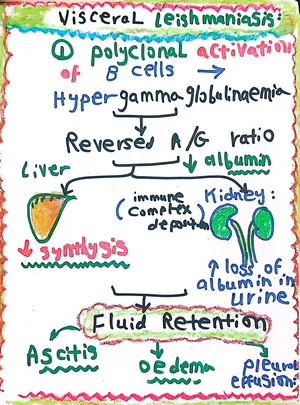 Visceral leishmaniasis:
① polyclonal activation
of B cells →
Hypergammaglobulinaemia
Reversed A/G ratio
↓ albumin
liver
(immune
complex
deposition)
Kidney:
↓ synthysis
↑ loss of
albumin in
urine
Fluid Retention
Ascitis
oedema
pleural
effusion